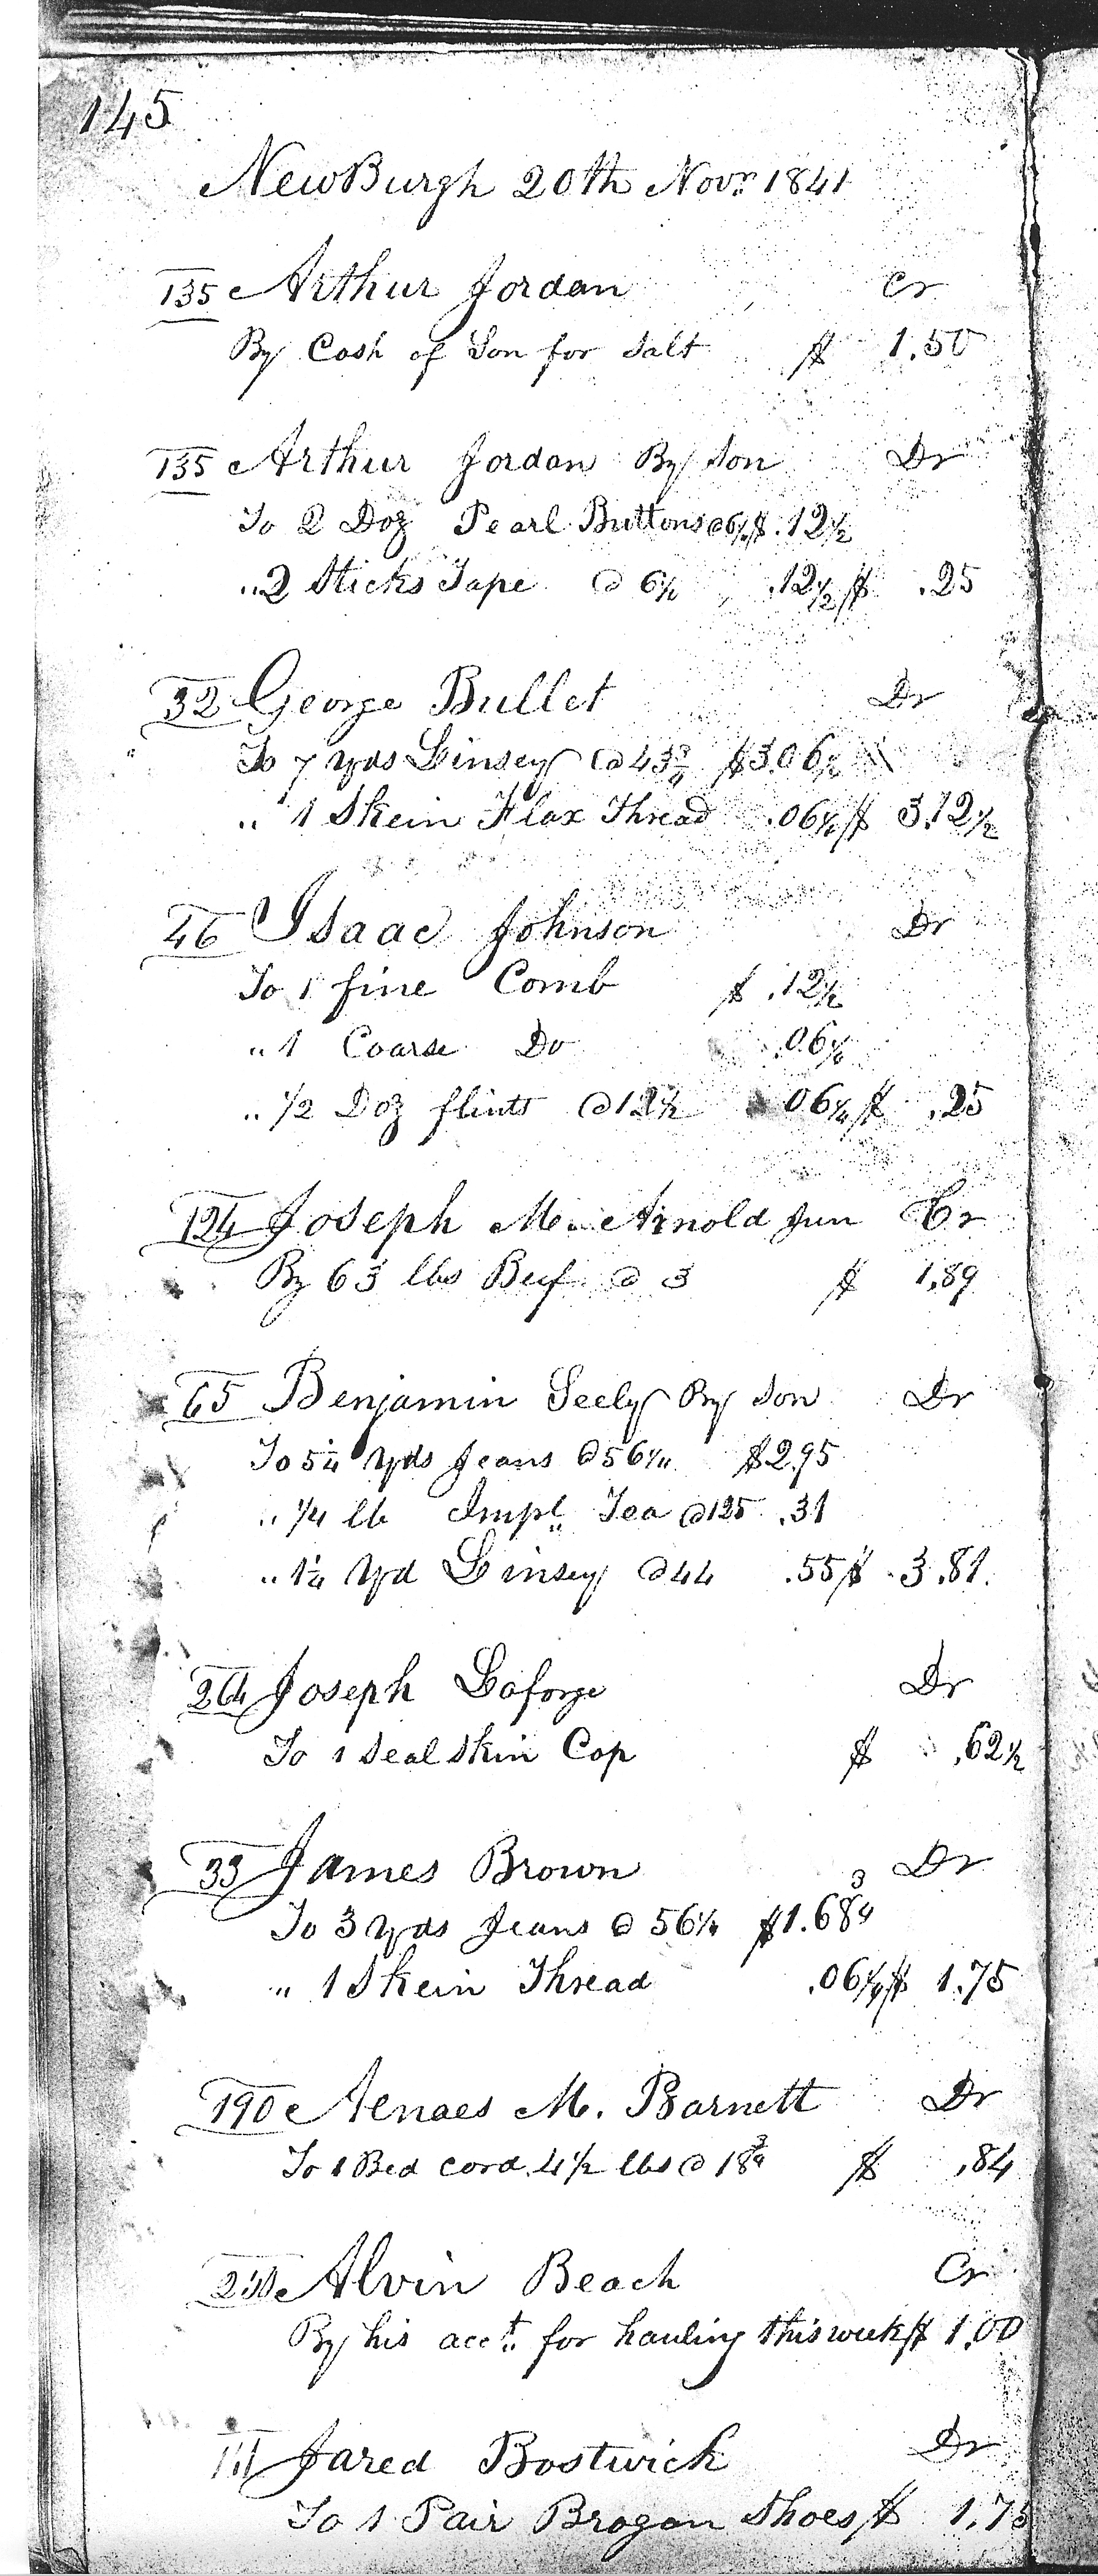 145
NewBurgh 20th Novr 1841
135 Arthur Jordan Cr
By Cash of Son for Salt $ 1.50
135 Arthur Jordan By Son Dr
To 2 Doz Pearl Buttons @ 6¼ $ .12½
" 2 Sticks Tape @ 6¼ .12½ $ .25
32 George Bullet Dr
To 7 yds Linsey @ 43¾ $3.06¼
" 1 Skein Flax Thread .06¼ $ 3.12½
46 Isaac Johnson Dr
To 1 fine Comb $ .12½
" 1 Coarse Do .06¼
" ½ Doz flints @ 12½ 06¼ $ .25
124 Joseph M. Arnold Jun Cr
By 63 lbs Beef @ 3 $ 1.89
65 Benjamin Seely By Son Dr
To 5¼ Yds Jeans @ 56¼ $2.95
" ¼ lb Impl Tea @ 125 .31
" 1¼ Yd Linsey @ 44 .55 $ 3.81.
264 Joseph Laforge Dr
To 1 Seal Skin Cap $ .62½
33 James Brown Dr
To 3 yds Jeans @ 56¼ $1.68¾
" 1 Skein Thread .06¼ $ 1.75
190 Aenaes M. Barnett Dr
To 1 Bed cord 4½ lbs @ 18¾ $ .84
Alvin Beach Cr
By his acct. for hauling this week $ 1.00
Jared Bostwick Dr
To 1 Pair Brogan Shoes $ 1.75